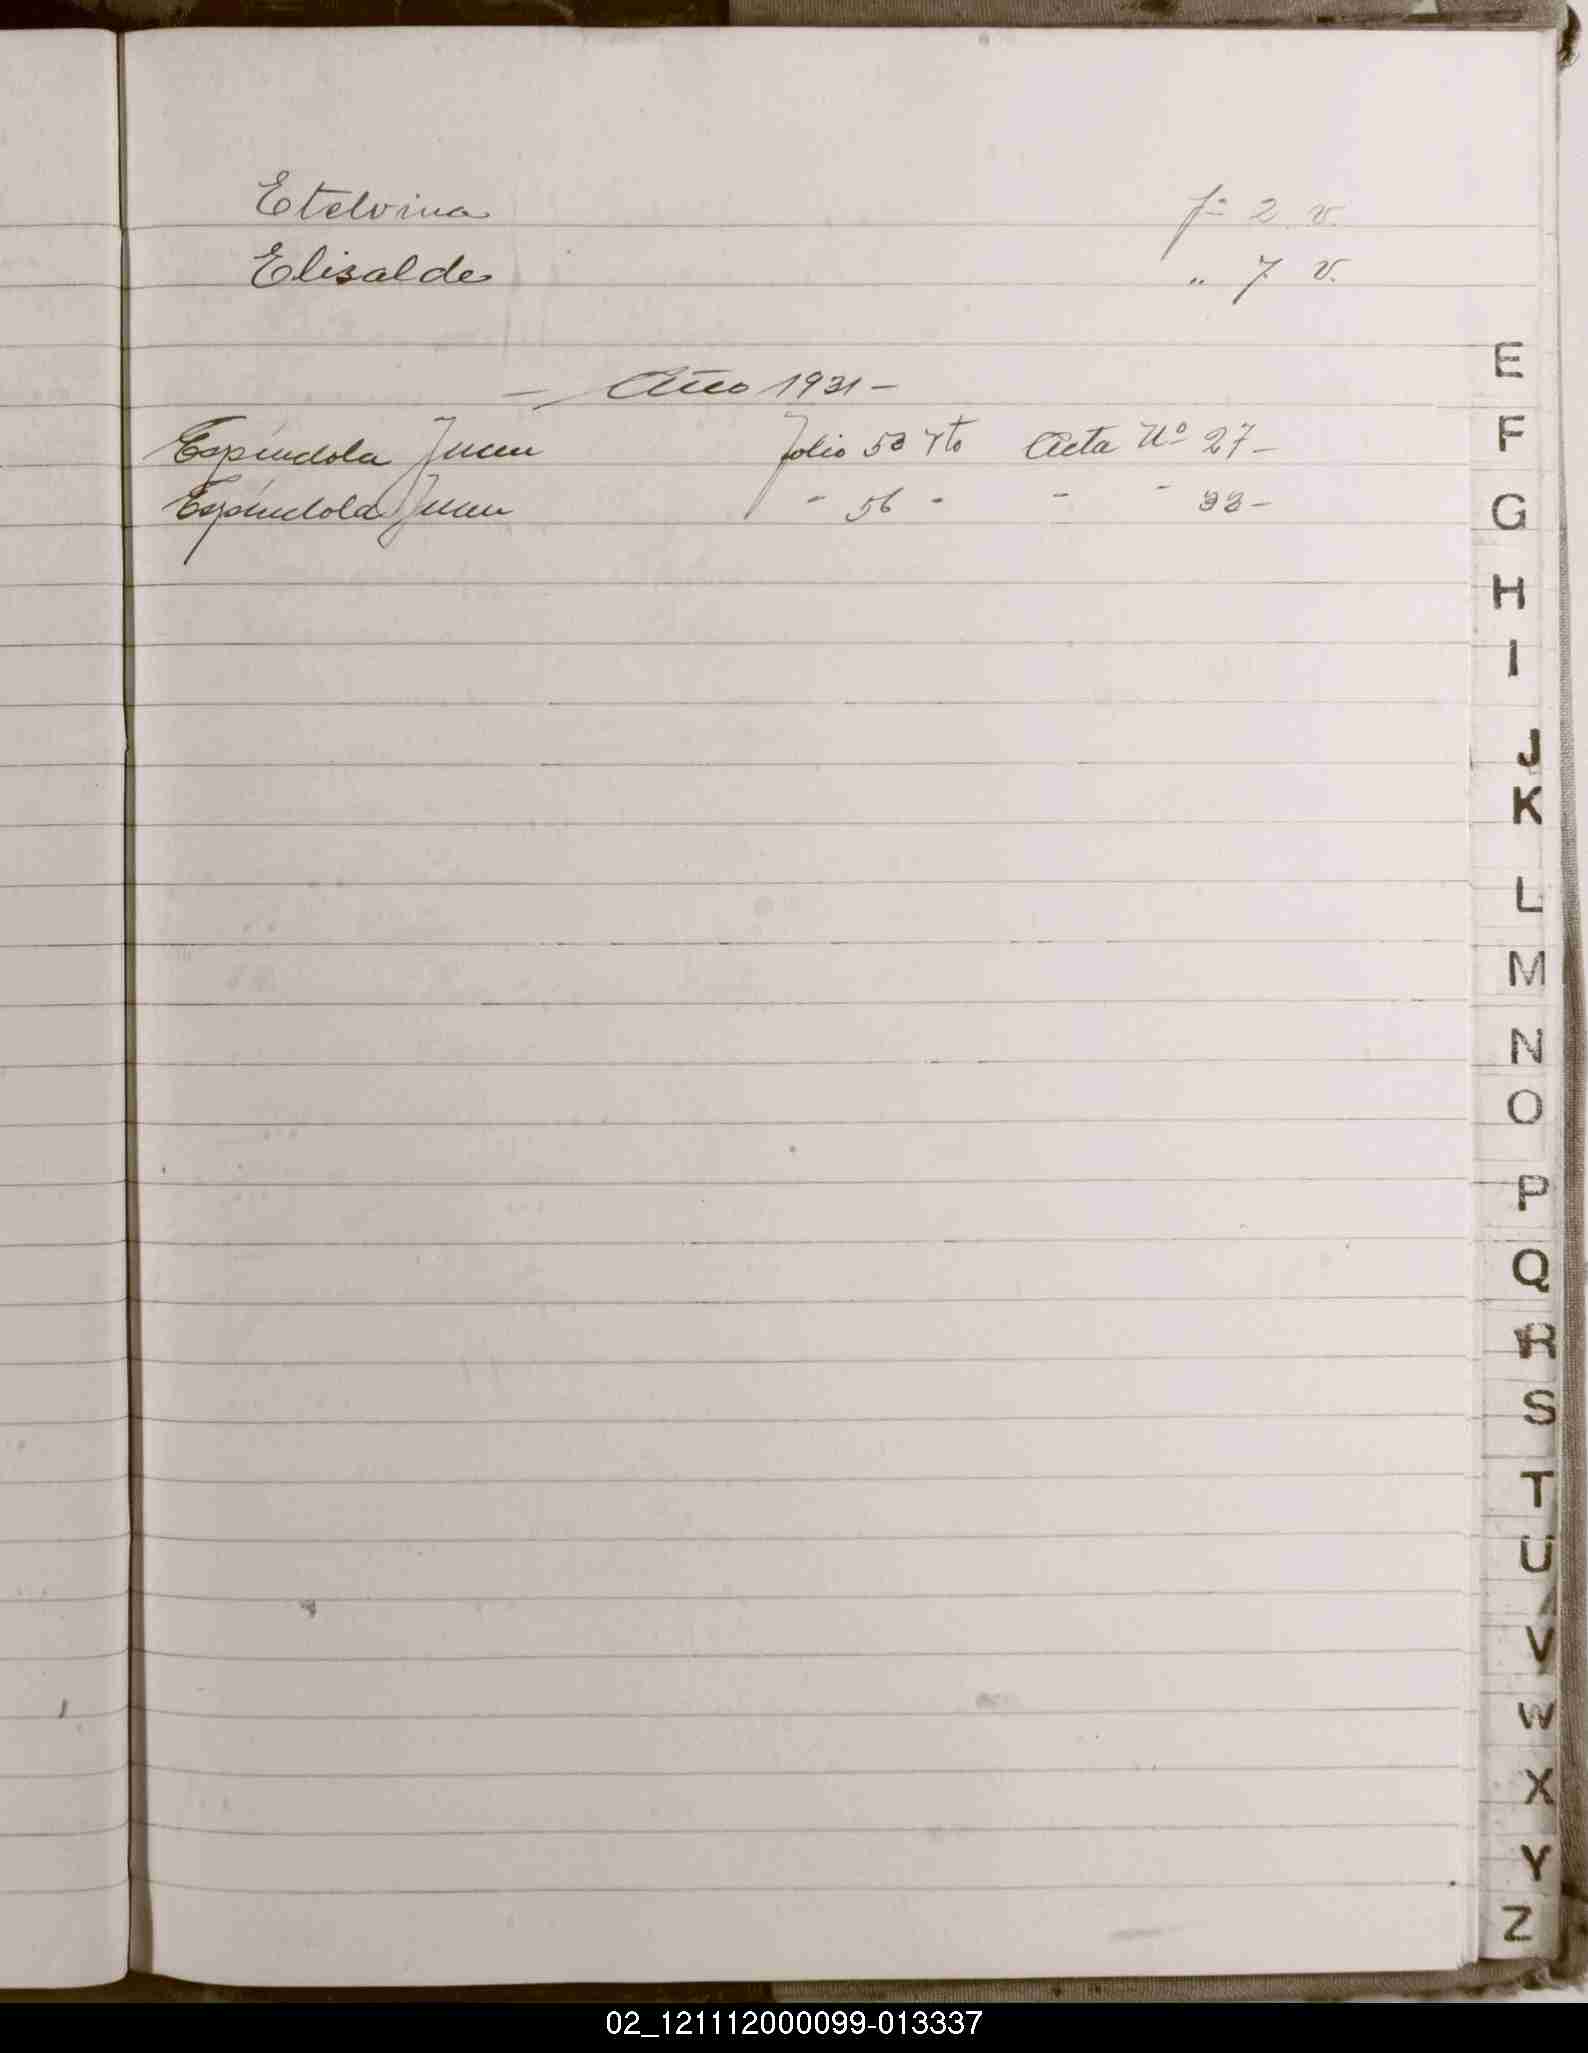 Etelvina fº 2 v.
Elisalde " 7 v.
- Año 1931 -
Espíndola Juan Folio 53 Vto Acta Nº 27 -
Espíndola Juan - 56 - - - 33 -
E
F
G
H
I
J
K
L
M
N
O
P
Q
R
S
T
U
V
W
X
Y
Z
02_121112000099-013337